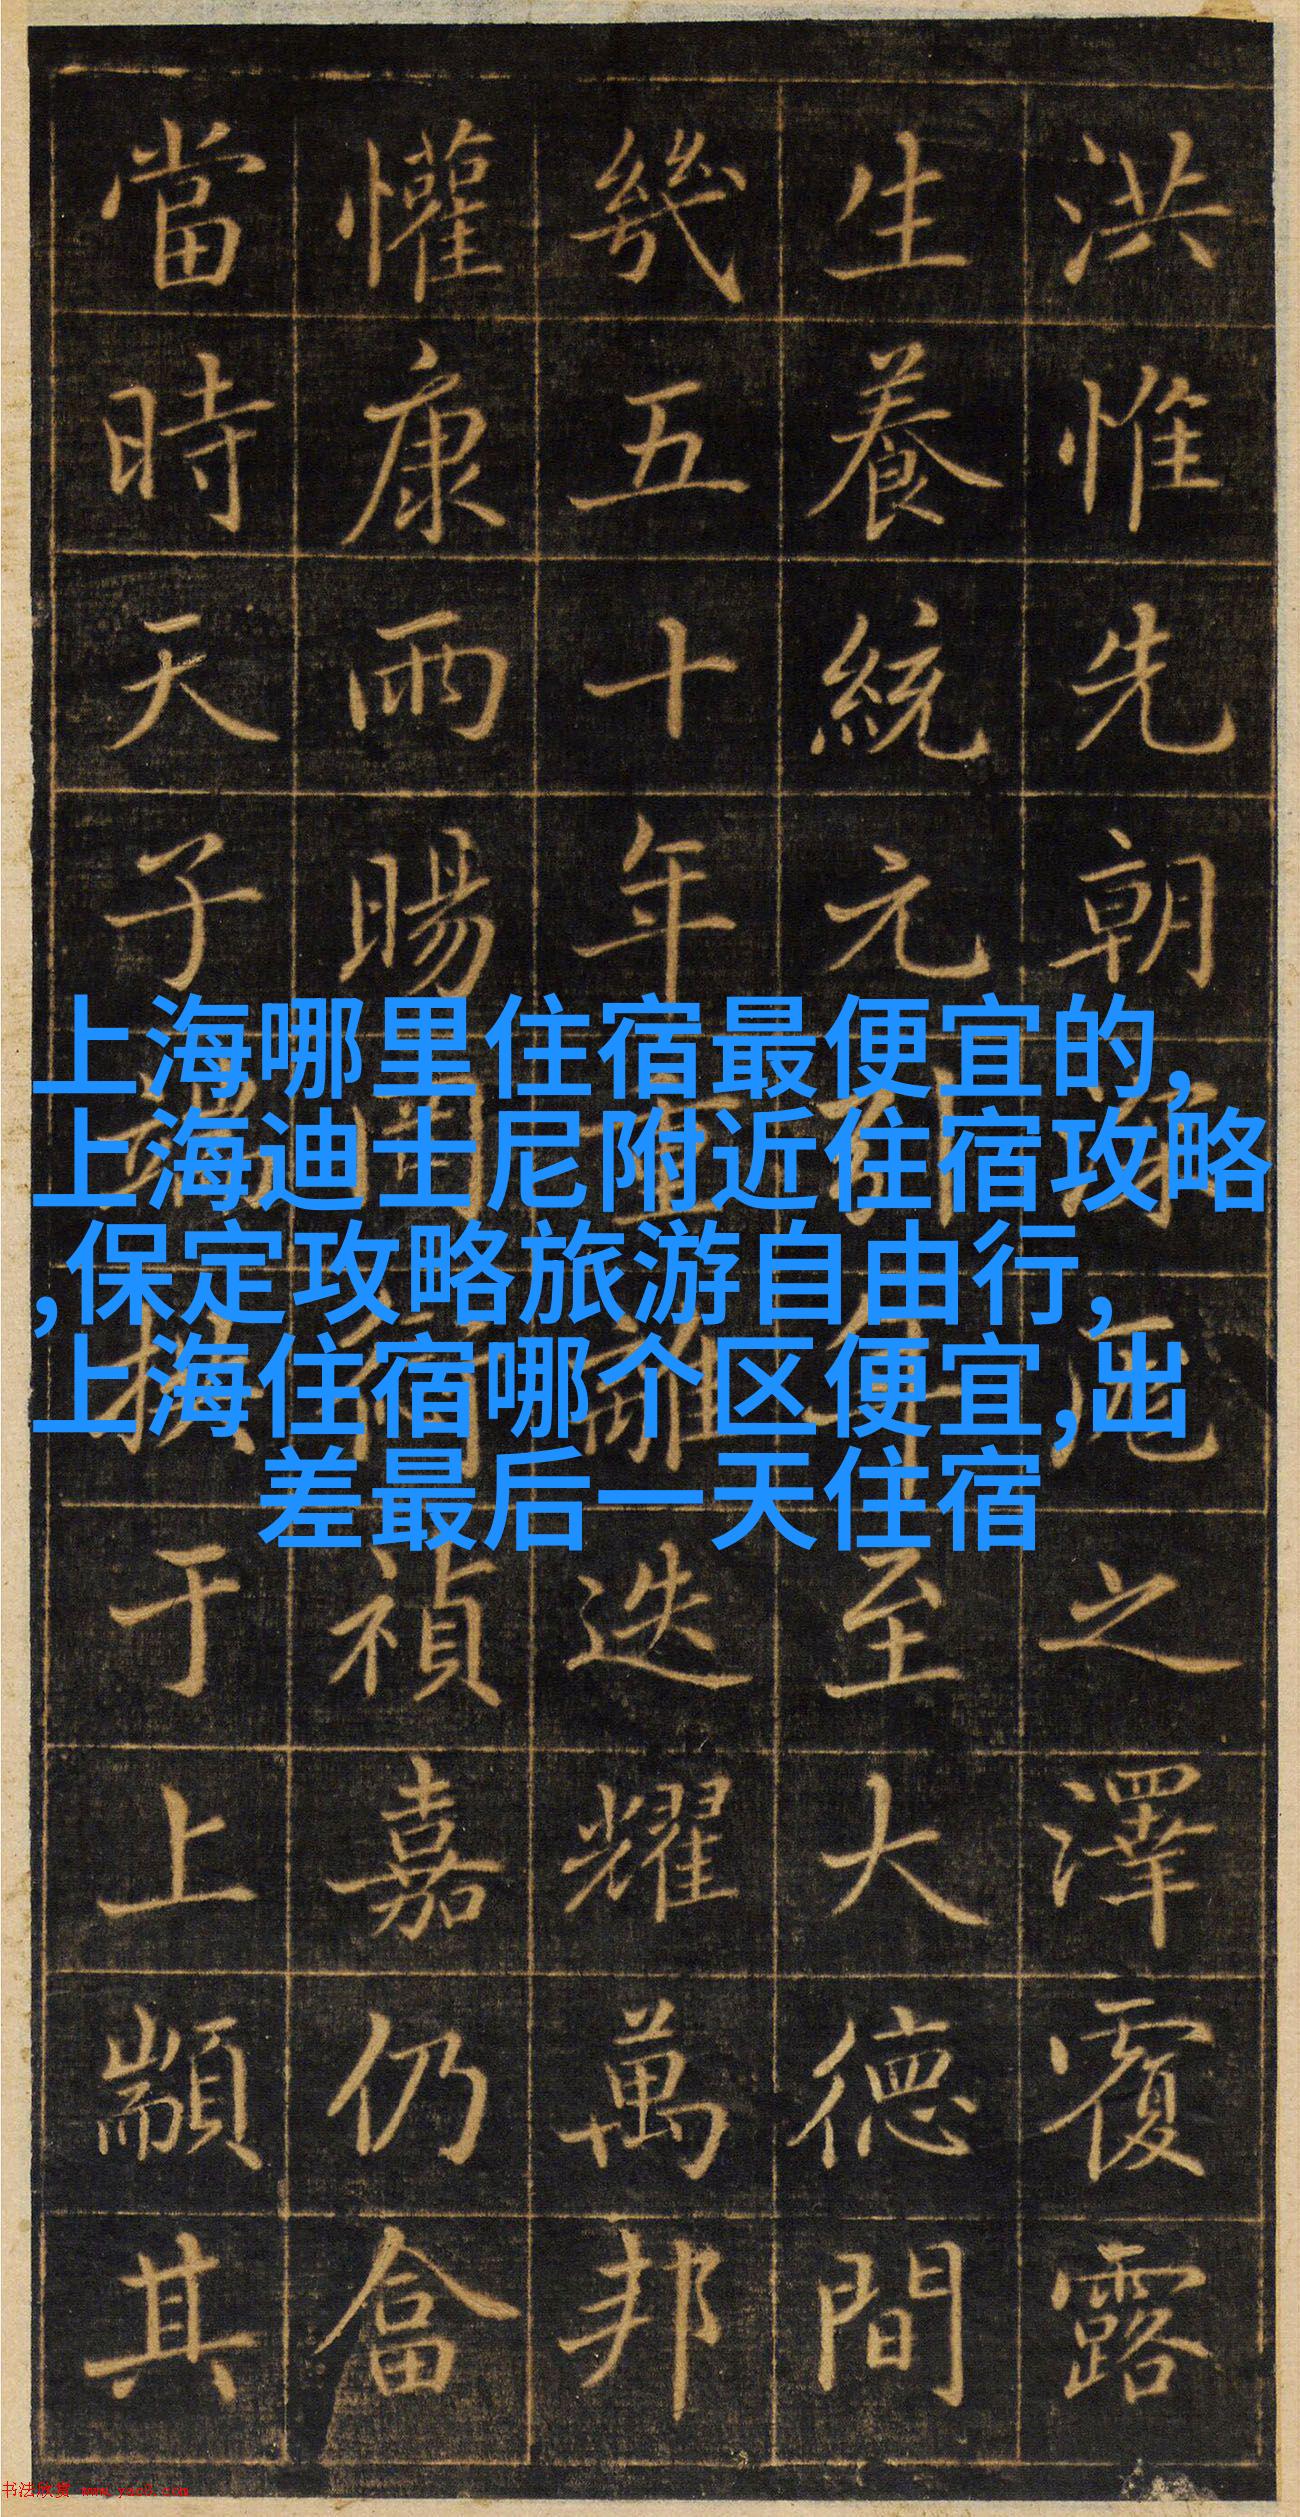 洪惟先朝之澤覆露
生養統元至大德間
幾五十年重離迭耀萬邦
懽康雨暘禎嘉仍畲
當時天子端拱于上顒其
上海哪里住宿最便宜的,
上海迪士尼附近住宿攻略
,保定攻略旅游自由行,
上海住宿哪个区便宜,出
差最后一天住宿
书法欣赏 www.yac8.com